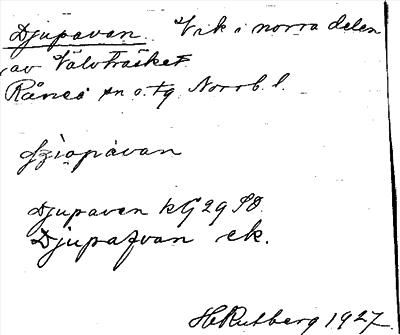 Djupavan. Vik i norra delen
av Valvträsket
Råneå sn o. tg. Norrb. l.
Djupaven kG 29 SO.
Djupafvan ek.
H Rutberg 1927.